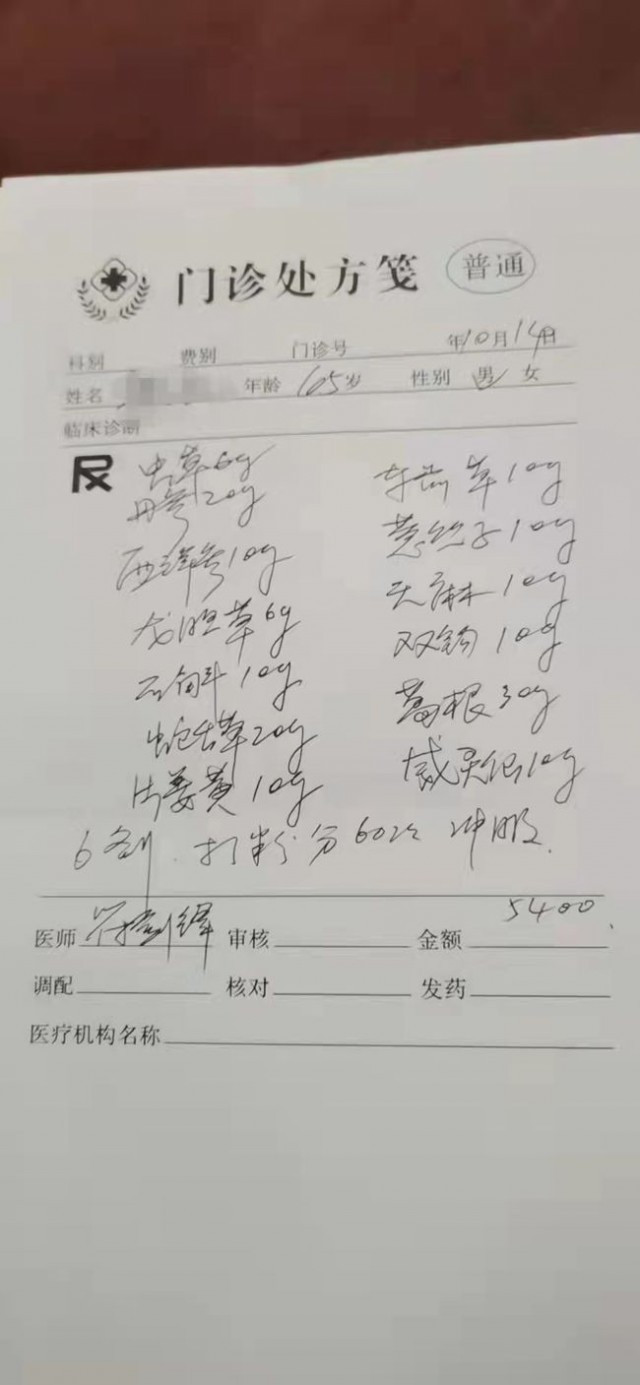 门诊处方笺 普通
科别 费别 门诊号 年10月14日
姓名 年龄 65岁 性别 男 女
临床诊断
R
虫草6g
丹参20g
西洋参10g
龙胆草6g
石斛10g
蛇舌草20g
片姜黄10g
车前草10g
菟丝子10g
天麻10g
双钩10g
葛根30g
威灵仙10g
6剂.打粉分60次 冲服.
医师 审核 金额 5400
调配 核对 发药
医疗机构名称